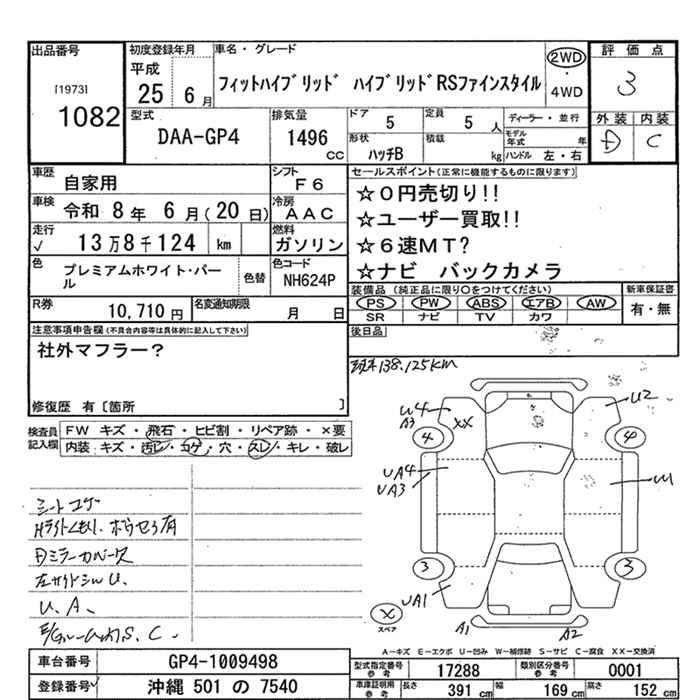 出品番号
[1973]
1082
初度登録年月
平成
25 6月
車名・グレード
フィットハイブリッド ハイブリッドRSファインスタイル
2WD
・
4WD
評価点
3
外装 内装
D C
型式
DAA-GP4
排気量
1496
cc
ドア 5
定員 5人
形状
ハッチB
積載
kg
ディーラー・並行
モデル年式 年
ハンドル 左・右
車歴 自家用
シフト F6
車検 令和 8年 6月(20日)
冷房 AAC
走行 √ 13万8千124 km
燃料 ガソリン
色 プレミアムホワイト・パール
色替
色コード NH624P
R券 10,710円
名変通知期限 月 日
セールスポイント(正常に機能するものに限ります)
☆0円売切り!!
☆ユーザー買取!!
☆6速MT?
☆ナビ バックカメラ
装備品 (純正品に限り○をつけてください)
PS PW ABS エアB AW
SR ナビ TV カワ
新車保証書
有・無
後日品
注意事項申告欄(不具合内容等は具体的に記入して下さい)
社外マフラー?
修復歴 有〔箇所 〕
現車138,125km
検査員記入欄
FW キズ・飛石・ヒビ割・リペア跡・×要
内装:キズ・汚レ・コゲ・穴・スレ・キレ・破レ
シートコゲ
Hライトくもり、
Dミラーカバー
左サイドシルU、
U、A、
S、C、
U4
A3
XX
4
U2
4
UA4
UA3
3
3
UA1
×
スペア
A1
A2
A-キズ E-エクボ U-凹み W-補修跡 S-サビ C-腐食 XX-交換済
車台番号 GP4-1009498
登録番号 沖縄 501 の 7540
型式指定番号 参考 17288
類別区分番号 参考 0001
車庫証明用 参考 長さ 391cm 幅 169cm 高さ 152cm